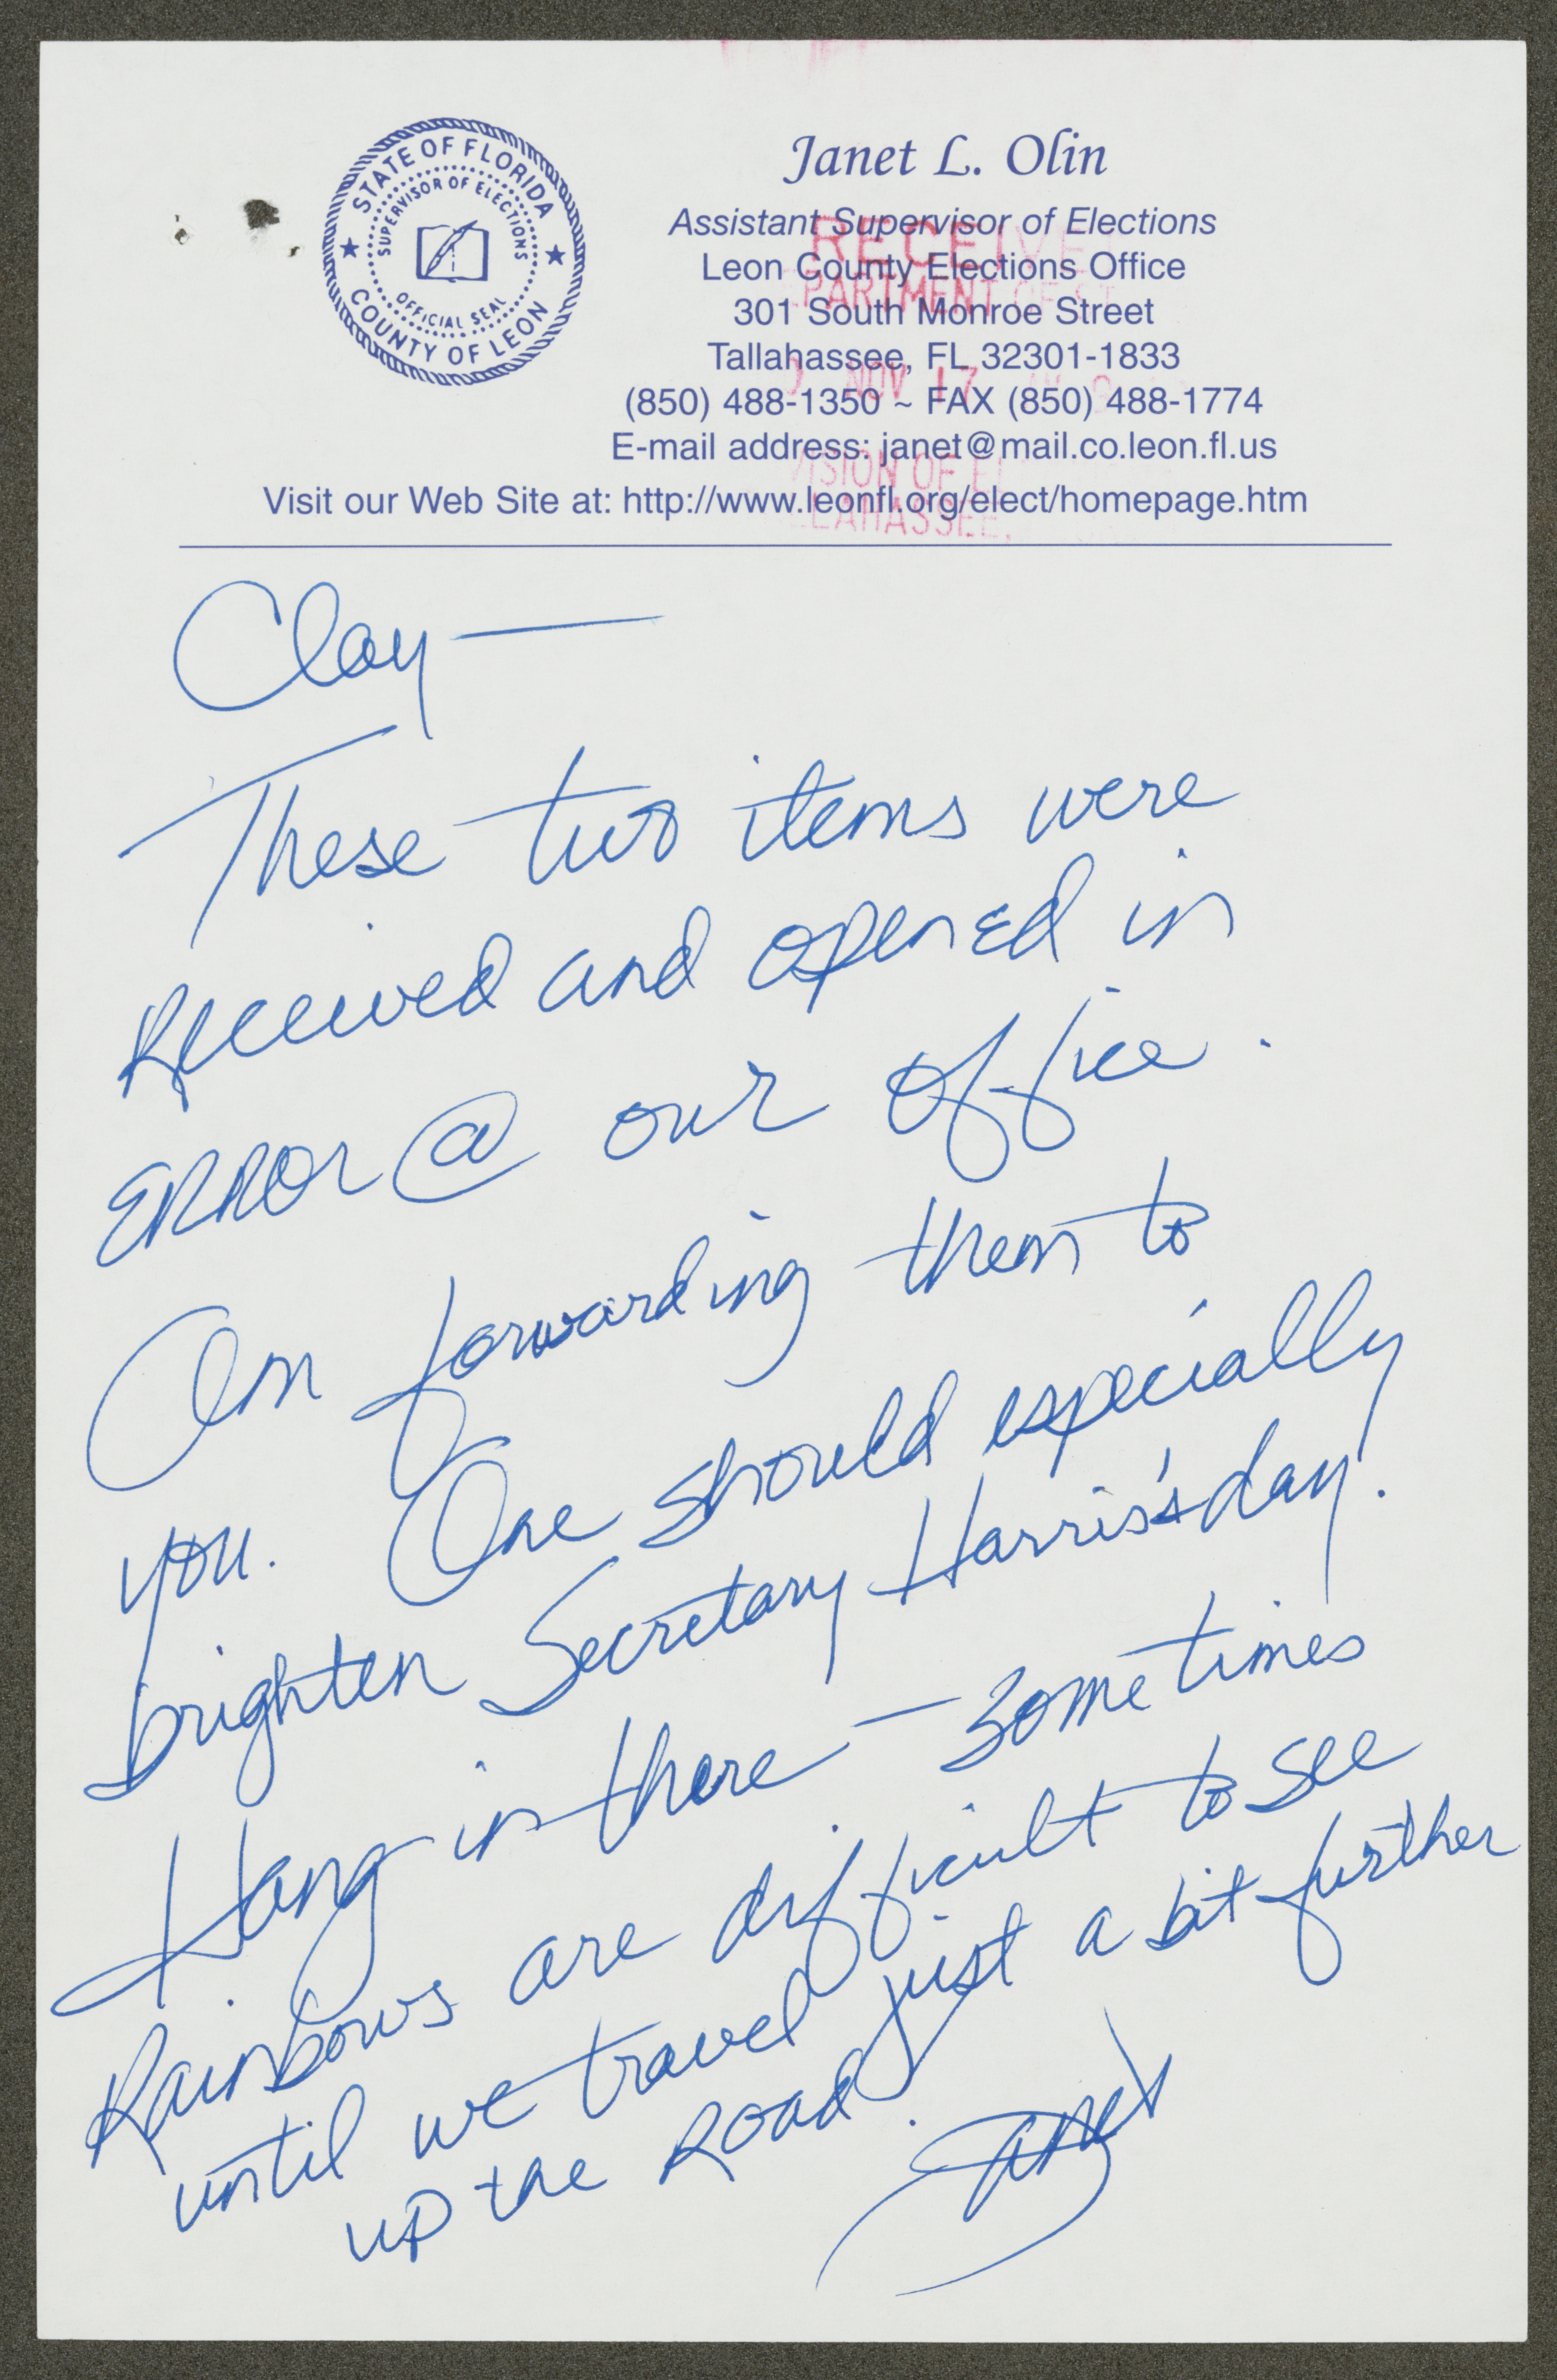 STATE OF FLORIDA
SUPERVISOR OF ELECTIONS
OFFICIAL SEAL
COUNTY OF LEON
Janet L. Olin
Assistant Supervisor of Elections
Leon County Elections Office
301 South Monroe Street
Tallahassee, FL 32301-1833
(850) 488-1350 ~ FAX (850) 488-1774
E-mail address: janet@mail.co.leon.fl.us
Visit our Web Site at: http://www.leonfl.org/elect/homepage.htm
RECEIVE
PARTMENT OF ST
NOV 17
ISION OF EL
LAHASSEE,
Clay —
These two items were
Received and opened in
ERROR @ our office.
Am forwarding them to
you. One should especially
brighten Secretary Harris's day.
Hang in there — sometimes
Rainbows are difficult to see
until we travel just a bit further
up the Road.
Janet